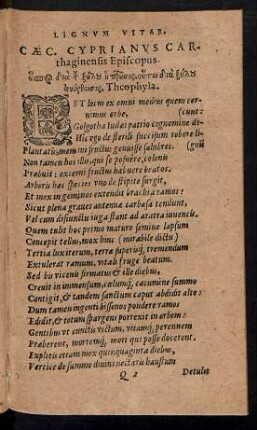 LIGNVM VITAE,
CÆC. CYPRIANVS CAR-
thaginensis Episcopus.
ὥσπερ διὰ ξύλου ἡ πτῶσις, οὕτω διὰ ξύλου
ἀνόρθωσις, Theophyla.
EST locus ex omni medius quem cer-
nimus orbe, (cunt:
Golgotha Iudæi patrio cognomine di-
Hic ego de sterili succisum robore li- (gnũ
Plantatũ memini fructus genuisse salubres.
Non tamen hos illis, qui se posuêre, colonis
Præbuit: externi fructus habuêre beatos.
Arboris hæc species: uno de stipite surgit,
Et mox in geminos extendit brachia ramos:
Sicut plena graues antenna carbasa tendunt,
Vel cum disiunctis iuga stant ad aratra iuuencis.
Quem tulit hoc primo maturo semine lapsum
Concepit tellus, mox hinc (mirabile dictu)
Tertia lux iterum, terra superisq́; tremendum
Extulerat ramum, vitali fruge beatum.
Sed bis vicenis firmatus & ille diebus,
Creuit in immensum, cœlumq́; cacumine summo
Contigit, & tandem sanctum caput abdidit alto:
Dum tamen ingenti bissenos pondere ramos
Edidit, & totum spargens porrexit in orbem:
Gentibus vt cunctis victum, vitamq́; perennem
Præberent, mortemq́; mori qui posse docerent.
Expletis etiam mox quinquaginta diebus,
Vertice de summo diuini nectaris haustum
Q 2 Detulit